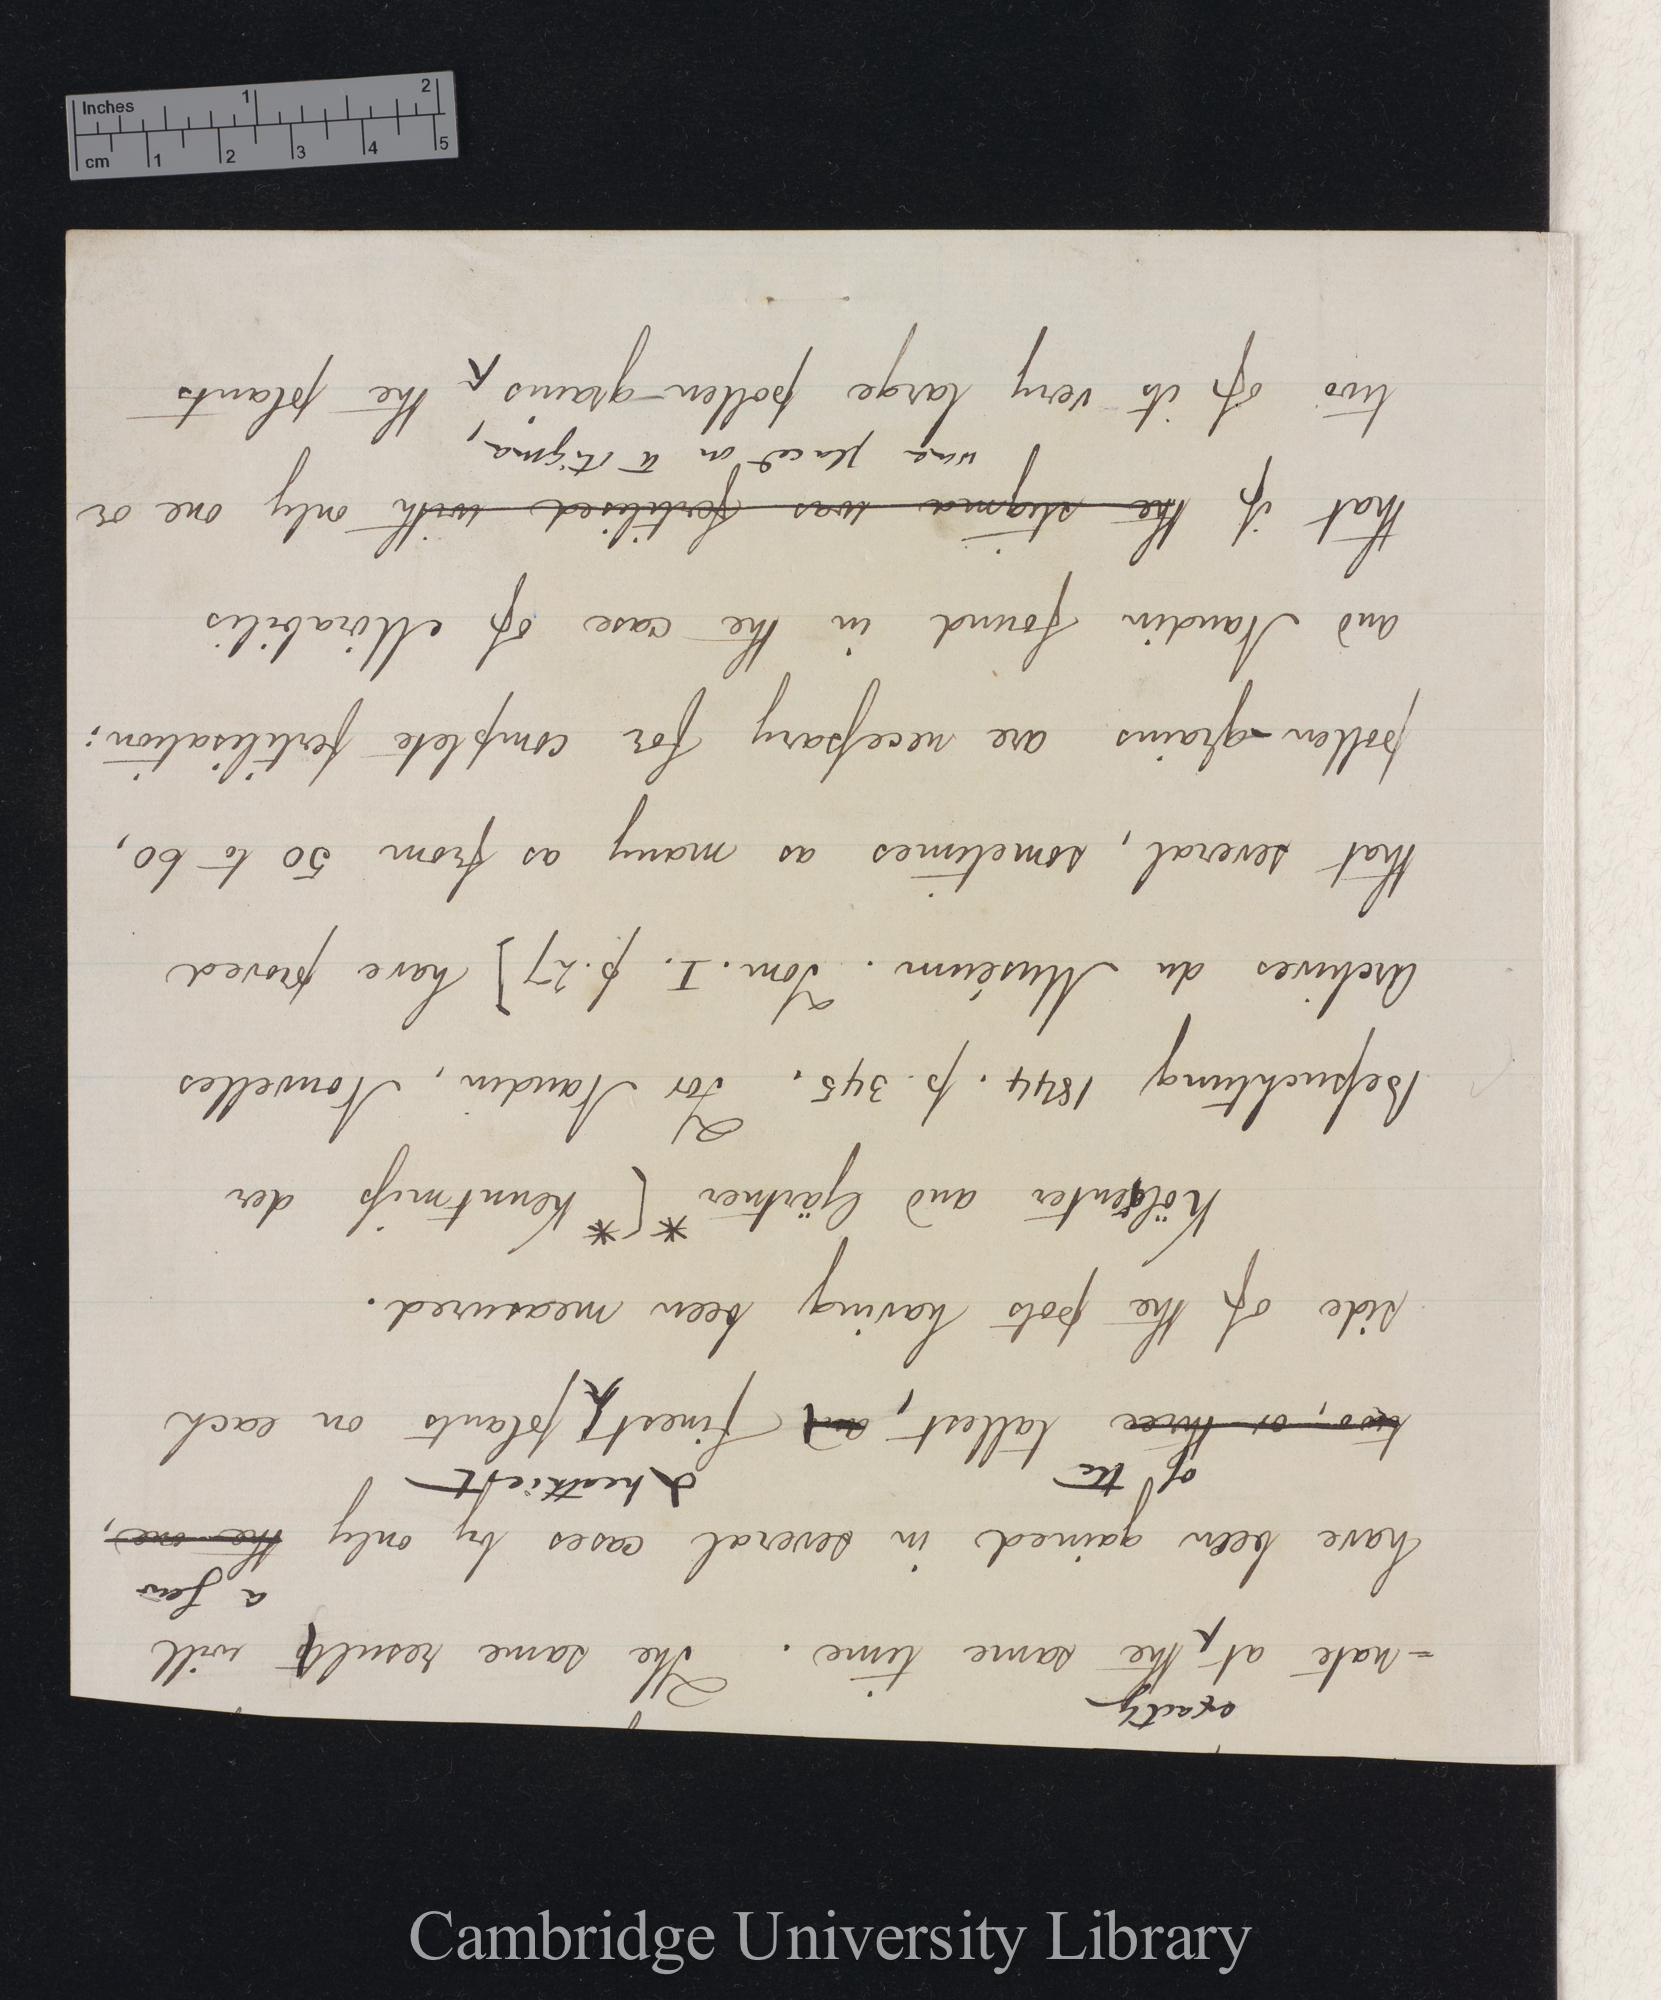 Inches 1 2
cm 1 2 3 4 5
exactly
-nate at the same time. The same result will
a few
have been gained in several cases by only the one,
of the & healthiest
two, or three tallest, and finest, plants on each
side of the pots having been measured.
Kölreuter and Gärtner *[* Kenntniss der
Befruchtung 1844. p. 345. For Naudin, Nouvelles
Archives du Muséum. Tom. I. p. 27] have proved
that several, sometimes as many as from 50 to 60,
pollen-grains are necessary for complete fertilisation;
and Naudin found in the case of Mirabilis
that if the stigma was fertilised with only one or
was placed on a stigma,
two of its very large pollen-grains the plants
Cambridge University Library